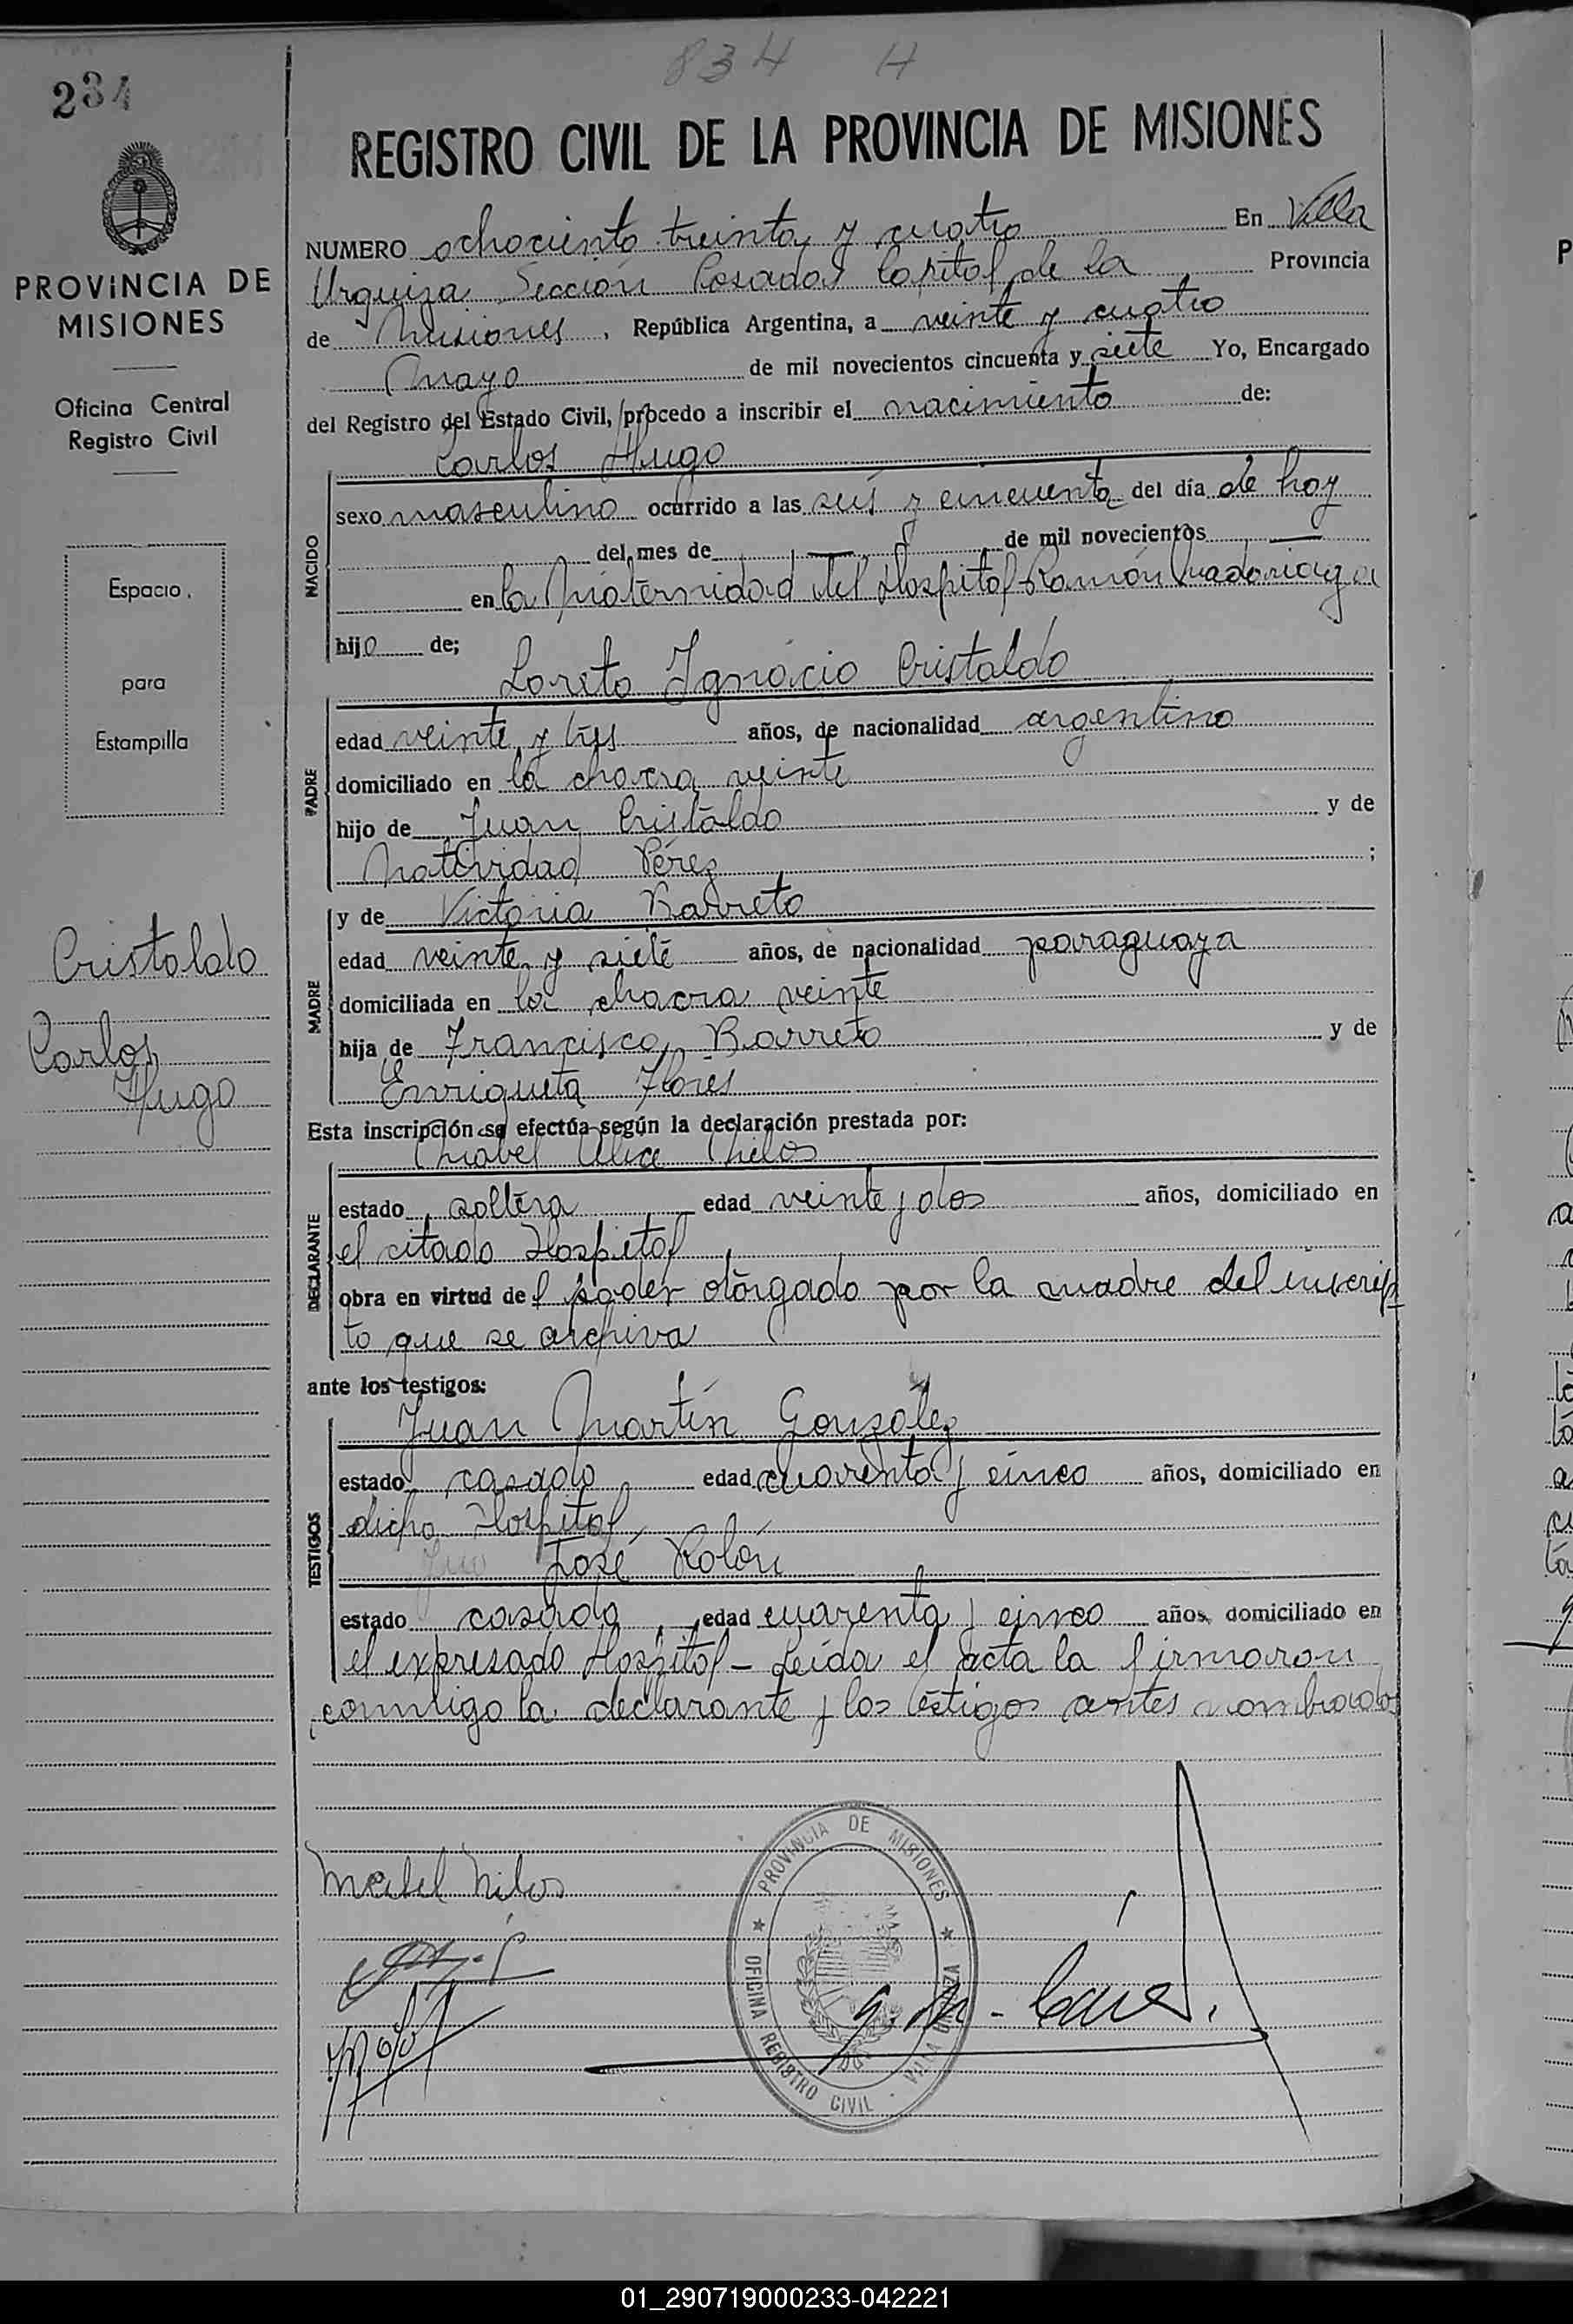 834 H
234
REGISTRO CIVIL DE LA PROVINCIA DE MISIONES
PROVINCIA DE
MISIONES
Oficina Central
Registro Civil
Espacio
para
Estampilla
Cristaldo
Carlos
Hugo
NUMERO ochociento treinta y cuatro En Villa
Urquiza Sección Posadas Capital de la Provincia
de Misiones, República Argentina, a veinte y cuatro
Mayo de mil novecientos cincuenta y siete Yo, Encargado
del Registro del Estado Civil, procedo a inscribir el nacimiento de:
Carlos Hugo
NACIDO
sexo masculino ocurrido a las seis y cincuenta del día de hoy
del mes de — de mil novecientos —
en la Maternidad del Hospital Ramón Madariaga
hijo de;
Loreto Ignacio Cristaldo
PADRE
edad veinte y tres años, de nacionalidad argentino
domiciliado en la chacra veinte
hijo de Juan Cristaldo y de
Natividad Pérez ;
MADRE
y de Victoria Barreto
edad veinte y siete años, de nacionalidad paraguaya
domiciliada en la chacra veinte
hija de Francisco Barreto y de
Enriqueta Flores
Esta inscripción se efectúa según la declaración prestada por:
Mabel Nielos
DECLARANTE
estado soltera edad veinte y dos años, domiciliado en
el citado Hospital
obra en virtud del poder otorgado por la madre del inscrip
to que se archiva
ante los testigos:
Juan Martín González
TESTIGOS
estado casado edad cuarenta y cinco años, domiciliado en
dicho Hospital
José Rolón
estado casado edad cuarenta y cinco años, domiciliado en
el expresado Hospital – Leída el acta la firmaron
conmigo la declarante y los testigos antes nombrados
PROVINCIA DE MISIONES
OFICINA REGISTRO CIVIL - VILLA URQUIZA
01_290719000233-042221